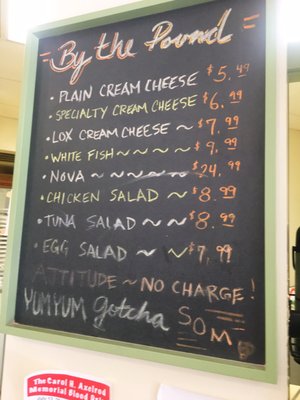 By the Pound
• PLAIN CREAM CHEESE $5.49
• SPECIALTY CREAM CHEESE $6.99
• LOX CREAM CHEESE ~ $7.99
• WHITE FISH ~ ~ ~ ~ ~ $9.99
• NOVA ~ ~ ~ $24.99
• CHICKEN SALAD ~ $8.99
• TUNA SALAD ~ ~ $8.99
• EGG SALAD ~ ~ $7.99
ATTITUDE ~ NO CHARGE!
YUMYUM Gotcha SOM
The Carol H. Axelrod
Memorial Blood